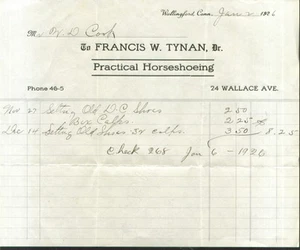 Wallingford Conn. Jan 2 1926
M D Cook
To FRANCIS W. TYNAN, Dr.
Practical Horseshoeing
Phone 46-5 24 WALLACE AVE.
Nov 27 Setting Old D.C Shoes 2.50
Box Calks. 2.25
Dec 14 Setting Old Shoes. 34 Calks. 3.50 8.25
Check 268 Jan 6 - 1926